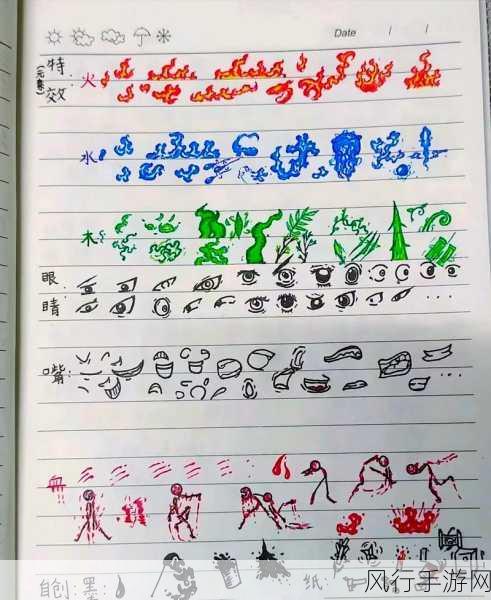 Date / /
特
(元素)
效:
火:
水:
木:
眼
睛:
...
嘴:
...
血
自创:墨:
纸:
风行手游网